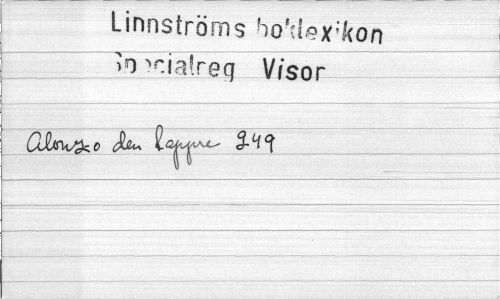 Linnströms boklexikon
Specialreg Visor
Alonzo den tappre 249